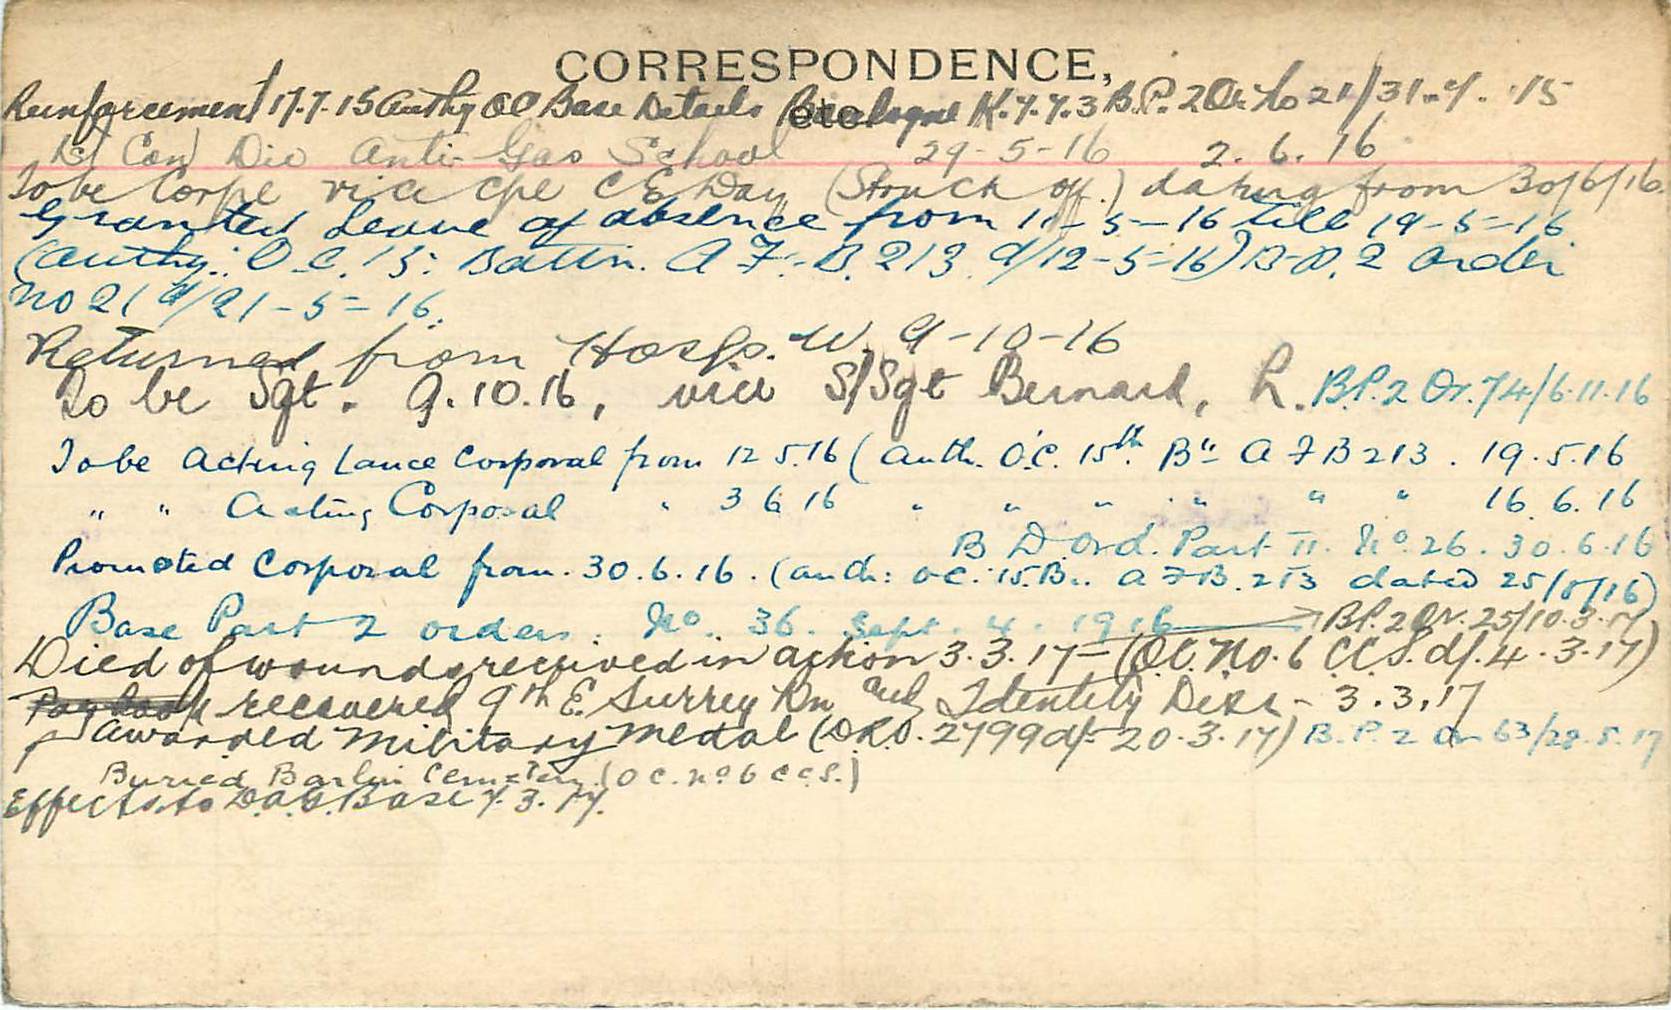 CORRESPONDENCE, etc.
Reinforcement 17.7.15 Authy OC Base Details Boulogne K.7.7.3 B.P. 2 Or No 21/31.7.15
Con Div Anti-Gas School 29-5-16 2.6.16
To be Corpl vice Cpl C E Day (Struck off.) dating from 30/6/16.
Granted Leave of absence from 11-5-16 till 19-5-16
(Authy: O.C. 15: Battn. A.F.-B.213 d/12-5-16) B-P. 2 Order
No 21 d/21-5-16.
Returned from Hosp. W. 9-10-16
To be Sgt. 9.10.16, vice S/Sgt Bernard, L. B.P.2 Or.74/6.11.16
To be Acting Lance Corporal from 12 5.16 (Auth. O.C. 15th Bn A F B 213. 19.5.16
" " Acting Corporal " 3 6 16 " " " " " " 16.6.16
B D Ord. Part II. No. 26. 30.6.16
Promoted Corporal from 30.6.16. (auth: OC. 15.Bn. A F B. 213 dated 25/8/16)
Base Part 2 orders. No. 36. Sept. 4. 1916 B.P. 2 Or. 25/10.3.17
Died of wounds received in action 3.3.17 - (O.C. No. 6 C.C.S. d/. 4.3.17)
Paybook recovered 9th E. Surrey Rn and Identity Disc - 3.3.17
Awarded Military Medal (D.R.O. 2799 d/- 20.3.17) B.P. 2 Or 63/28.5.17
Buried Barlin Cemetery (O C. No 6 C C S.)
Effects to D.A.G. Base 7.3.17.